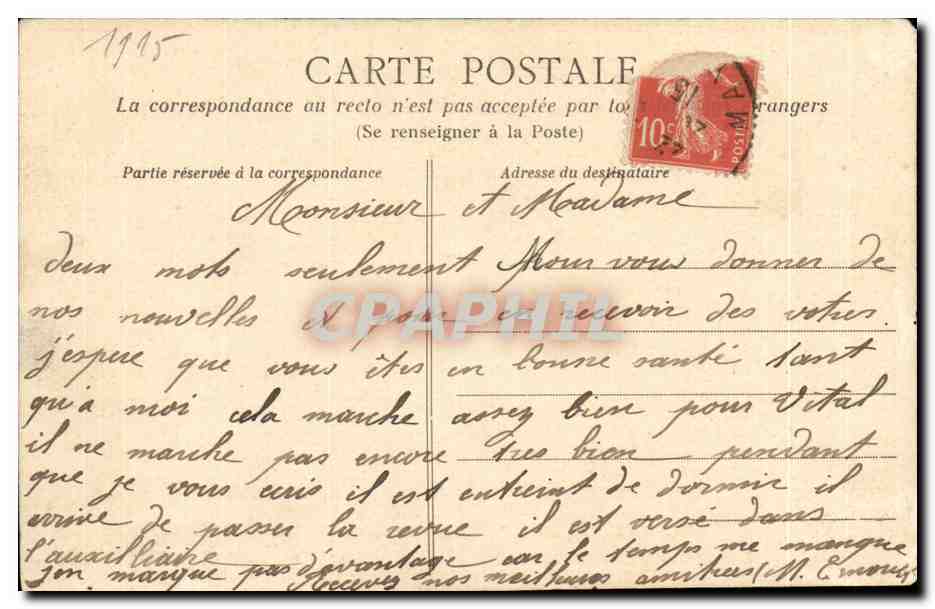 1915
CARTE POSTALE
La correspondance au recto n'est pas acceptée par to rangers
(Se renseigner à la Poste)
10c
POSTES
Partie réservée à la correspondance
Adresse du destinataire
Monsieur et Madame
deux mots seulement pour vous donner de
nos nouvelles et pour en recevoir des votres.
j'espere que vous êtes en bonne santé tant
qu'a moi cela marche assez bien pour Vital
il ne marche pas encore tres bien pendant
que je vous ecris il est entreint de dormir il
arrive de passer la revue il est versé dans
l'auxilliaire
j'en marque pas d'avantage car le temps me manque
Recevez nos meilleurs amitiers (M.
CPAPHIL